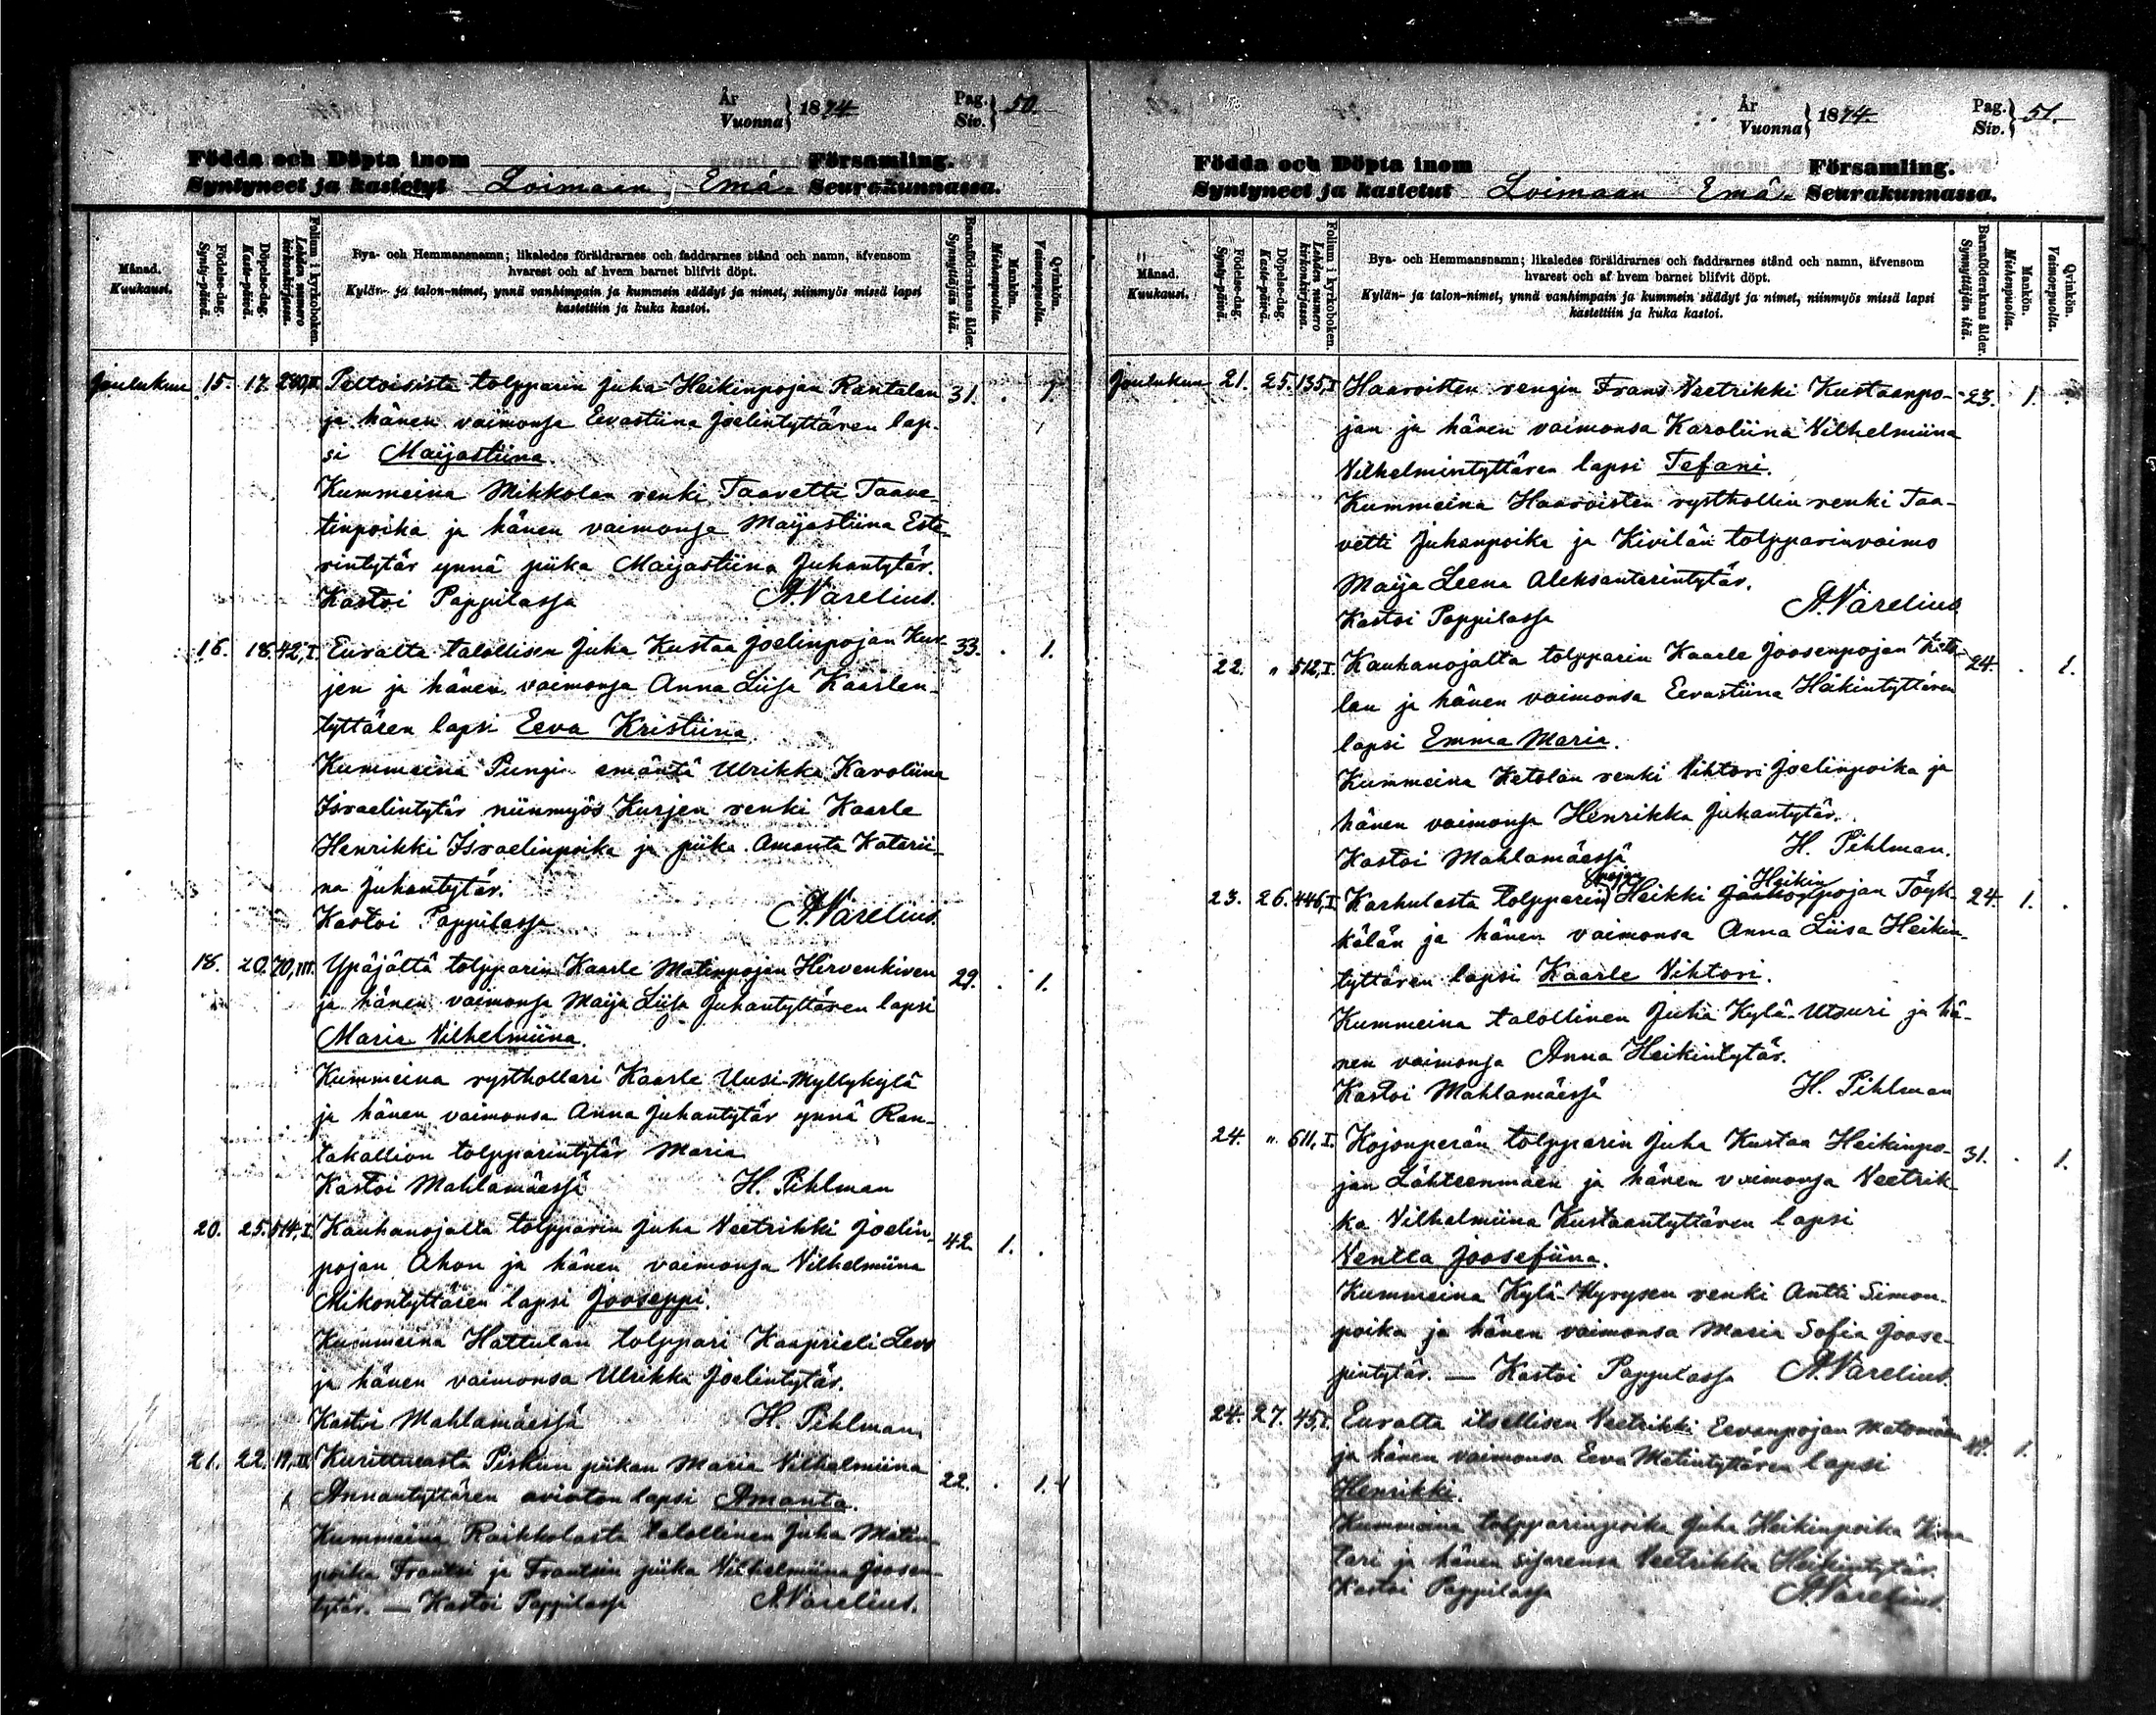 År
Vuonna } 1874.
Pag.
Siv. } 50.
Födda och Döpta inom Församling.
Syntyneet ja kastetyt Loimaan Emä- Seurakunnassa.
Månad.
Kuukausi.
Födelse-dag.
Synty-päivä.
Döpelse-dag.
Kaste-päivä.
Folium i kyrkoboken.
Lehden numero
kirkonkirjassa.
Bya- och Hemmansnamn; likaledes föräldrarnes och faddrarnes stånd och namn, äfvensom
hvarest och af hvem barnet blifvit döpt.
Kylän- ja talon-nimet, ynnä vanhimpain ja kummein säädyt ja nimet, niinmyös missä lapsi
kastettiin ja kuka kastoi.
Barnaföderskans ålder.
Synnyttäjän ikä.
Mankön.
Miehenpuolia.
Qvinkön.
Vaimonpuolia.
Joulukuu 15. 17. 280,II. Peltoisista tolpparin Juha Heikinpojan Rantalan 31. . 1.
ja hänen vaimonsa Eevastiina Joelintyttären lap-
si Maijastiina.
Kummeina Mikkolan renki Taavetti Taave-
tinpoika ja hänen vaimonsa Maijastiina Este-
rintytär ynnä piika Maijastiina Juhantytär.
Kastoi Pappilassa A. Varelius.
16. 18. 42,I. Euralta talollisen Juha Kustaa Joelinpojan Kur- 33. . 1.
jen ja hänen vaimonsa Anna Liisa Kaarlen-
tyttären lapsi Eeva Kristiina
Kummeina Pungin emäntä Ulrikka Karoliina
Israelintytär niinmyös Kurjen renki Kaarle
Henrikki Israelinpoika ja piika Amanta Katarii-
na Juhantytär.
Kastoi Pappilassa A. Varelius.
18. 20. 70,III. Ypäjältä tolpparin Kaarle Matinpojan Hirvenkiven 29. . 1.
ja hänen vaimonsa Maija Liisa Juhantyttären lapsi
Maria Vilhelmiina.
Kummeina rysthollari Kaarle Uusi-Myllykylä
ja hänen vaimonsa Anna Juhantytär ynnä Ran-
takallion tolpparintytär Maria
Kastoi Mahlamäessä H. Pihlman
20. 25. 514,I. Kauhanojalta tolpparin Juha Veetrikki Joelin- 42. 1. .
pojan Ahon ja hänen vaimonsa Vilhelmiina
Mikontyttären lapsi Jooseppi.
Kummeina Hattulan tolppari Kaaprieli Levo
ja hänen vaimonsa Ulrikka Joelintytär.
Kastoi Mahlamäessä H. Pihlman
21. 22. 19,II. Kurittulasta Piskun piikan Maria Vilhelmiina 22. . 1.
Annantyttären avioton lapsi Amanta.
Kummeina Raikkolasta talollinen Juha Matin-
poika Frantsi ja Frantsin piika Vilhelmiina Joosen-
tytär. — Kastoi Pappilassa A. Varelius.
År
Vuonna } 1874.
Pag.
Siv. } 51.
Födda och Döpta inom Församling.
Syntyneet ja kastetut Loimaan Emä- Seurakunnassa.
Månad.
Kuukausi.
Födelse-dag.
Synty-päivä.
Döpelse-dag.
Kaste-päivä.
Folium i kyrkoboken.
Lehden numero
kirkonkirjassa.
Bya- och Hemmansnamn; likaledes föräldrarnes och faddrarnes stånd och namn, äfvensom
hvarest och af hvem barnet blifvit döpt.
Kylän- ja talon-nimet, ynnä vanhimpain ja kummein säädyt ja nimet, niinmyös missä lapsi
kastettiin ja kuka kastoi.
Barnaföderskans ålder.
Synnyttäjän ikä.
Mankön.
Miehenpuolia.
Qvinkön.
Vaimonpuolia.
Joulukuu 21. 25. 135,I Haaroisten rengin Frans Veetrikki Kustaanpo- 23. 1. .
jan ja hänen vaimonsa Karoliina Vilhelmiina
Vilhelmintyttären lapsi Tefani.
Kummeina Haaroisten rysthollin renki Taa-
vetti Juhanpoika ja Kivilän tolpparinvaimo
Maija Leena Aleksanterintytär.
Kastoi Pappilassa A. Varelius
22. " 512,I. Kauhanojalta tolpparin Kaarle Joosenpojan Keto- 24. . 1.
lan ja hänen vaimonsa Eevastiina Häkintyttären
lapsi Emma Maria.
Kummeina Ketolan renki Vihtori Joelinpoika ja
hänen vaimonsa Henrikka Juhantytär.
Kastoi Mahlamäessä H. Pihlman.
pojan Heikin
23. 26. 446,I. Karhulasta tolpparin Heikki pojan Töyk- 24. 1. .
kälän ja hänen vaimonsa Anna Liisa Heikin-
tyttären lapsi Kaarle Vihtori.
Kummeina talollinen Juha Kylä-Utsuri ja hä-
nen vaimonsa Anna Heikintytär.
Kastoi Mahlamäessä H. Pihlman
24. " 611,I. Kojonperän tolpparin Juha Kustaa Heikinpo- 31. . 1.
jan Lähteenmäen ja hänen vaimonsa Veetrik-
ka Vilhelmiina Kustaantyttären lapsi
Ventla Joosefiina.
Kummeina Kylä-Hyrysen renki Antti Simon-
poika ja hänen vaimonsa Maria Sofia Joose-
pintytär. — Kastoi Pappilassa A. Varelius.
24. 27. 45,I. Euralta itsellisen Veetrikki Eevanpojan Matomäen 1.
ja hänen vaimonsa Eeva Matintyttären lapsi
Henrikki.
Kummeina tolpparinpoika Juha Heikinpoika
ja hänen sisarensa Veetrikka Heikintytär.
Kastoi Pappilassa A. Varelius.